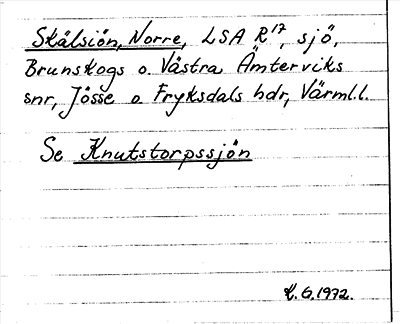 Skälsjön, Norre, LSA R¹⁷, sjö,
Brunskogs o. Västra Ämterviks
snr, Jösse o. Fryksdals hdr, Värml.l.
Se Knutstorpssjön
K. G. 1972.